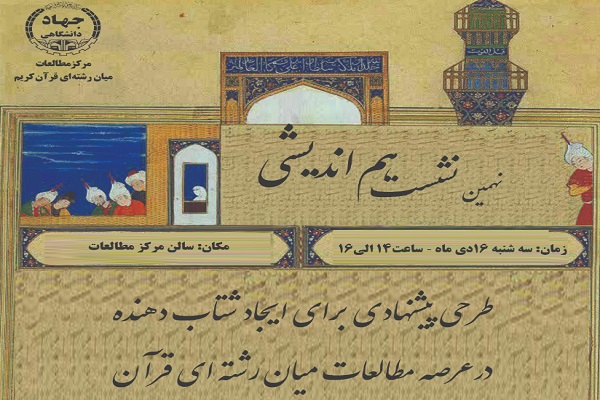 جهاد
دانشگاهی
مرکز مطالعات
میان رشته‌ای قرآن کریم
نهمین نشست هم اندیشی
زمان: سه شنبه ۱۶دی ماه - ساعت۱۴ الی۱۶
مکان: سالن مرکز مطالعات
طرحی پیشنهادی برای ایجاد شتاب دهنده
در عرصه مطالعات میان رشته ای قرآن